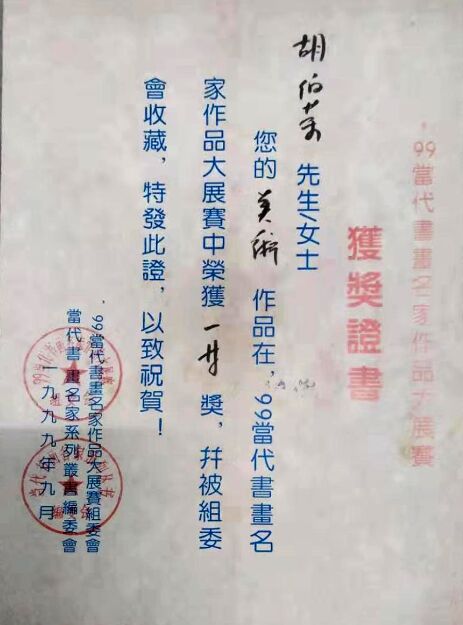 '99當代書畫名家作品大展賽
獲獎證書
胡伯 先生/女士
您的 美術 作品在'99當代書畫名
家作品大展賽中榮獲 一等 獎，幷被組委
會收藏，特發此證，以致祝賀！
'99當代書畫名家作品大展賽組委會
當代書畫名家系列叢書編委會
一九九九年九月